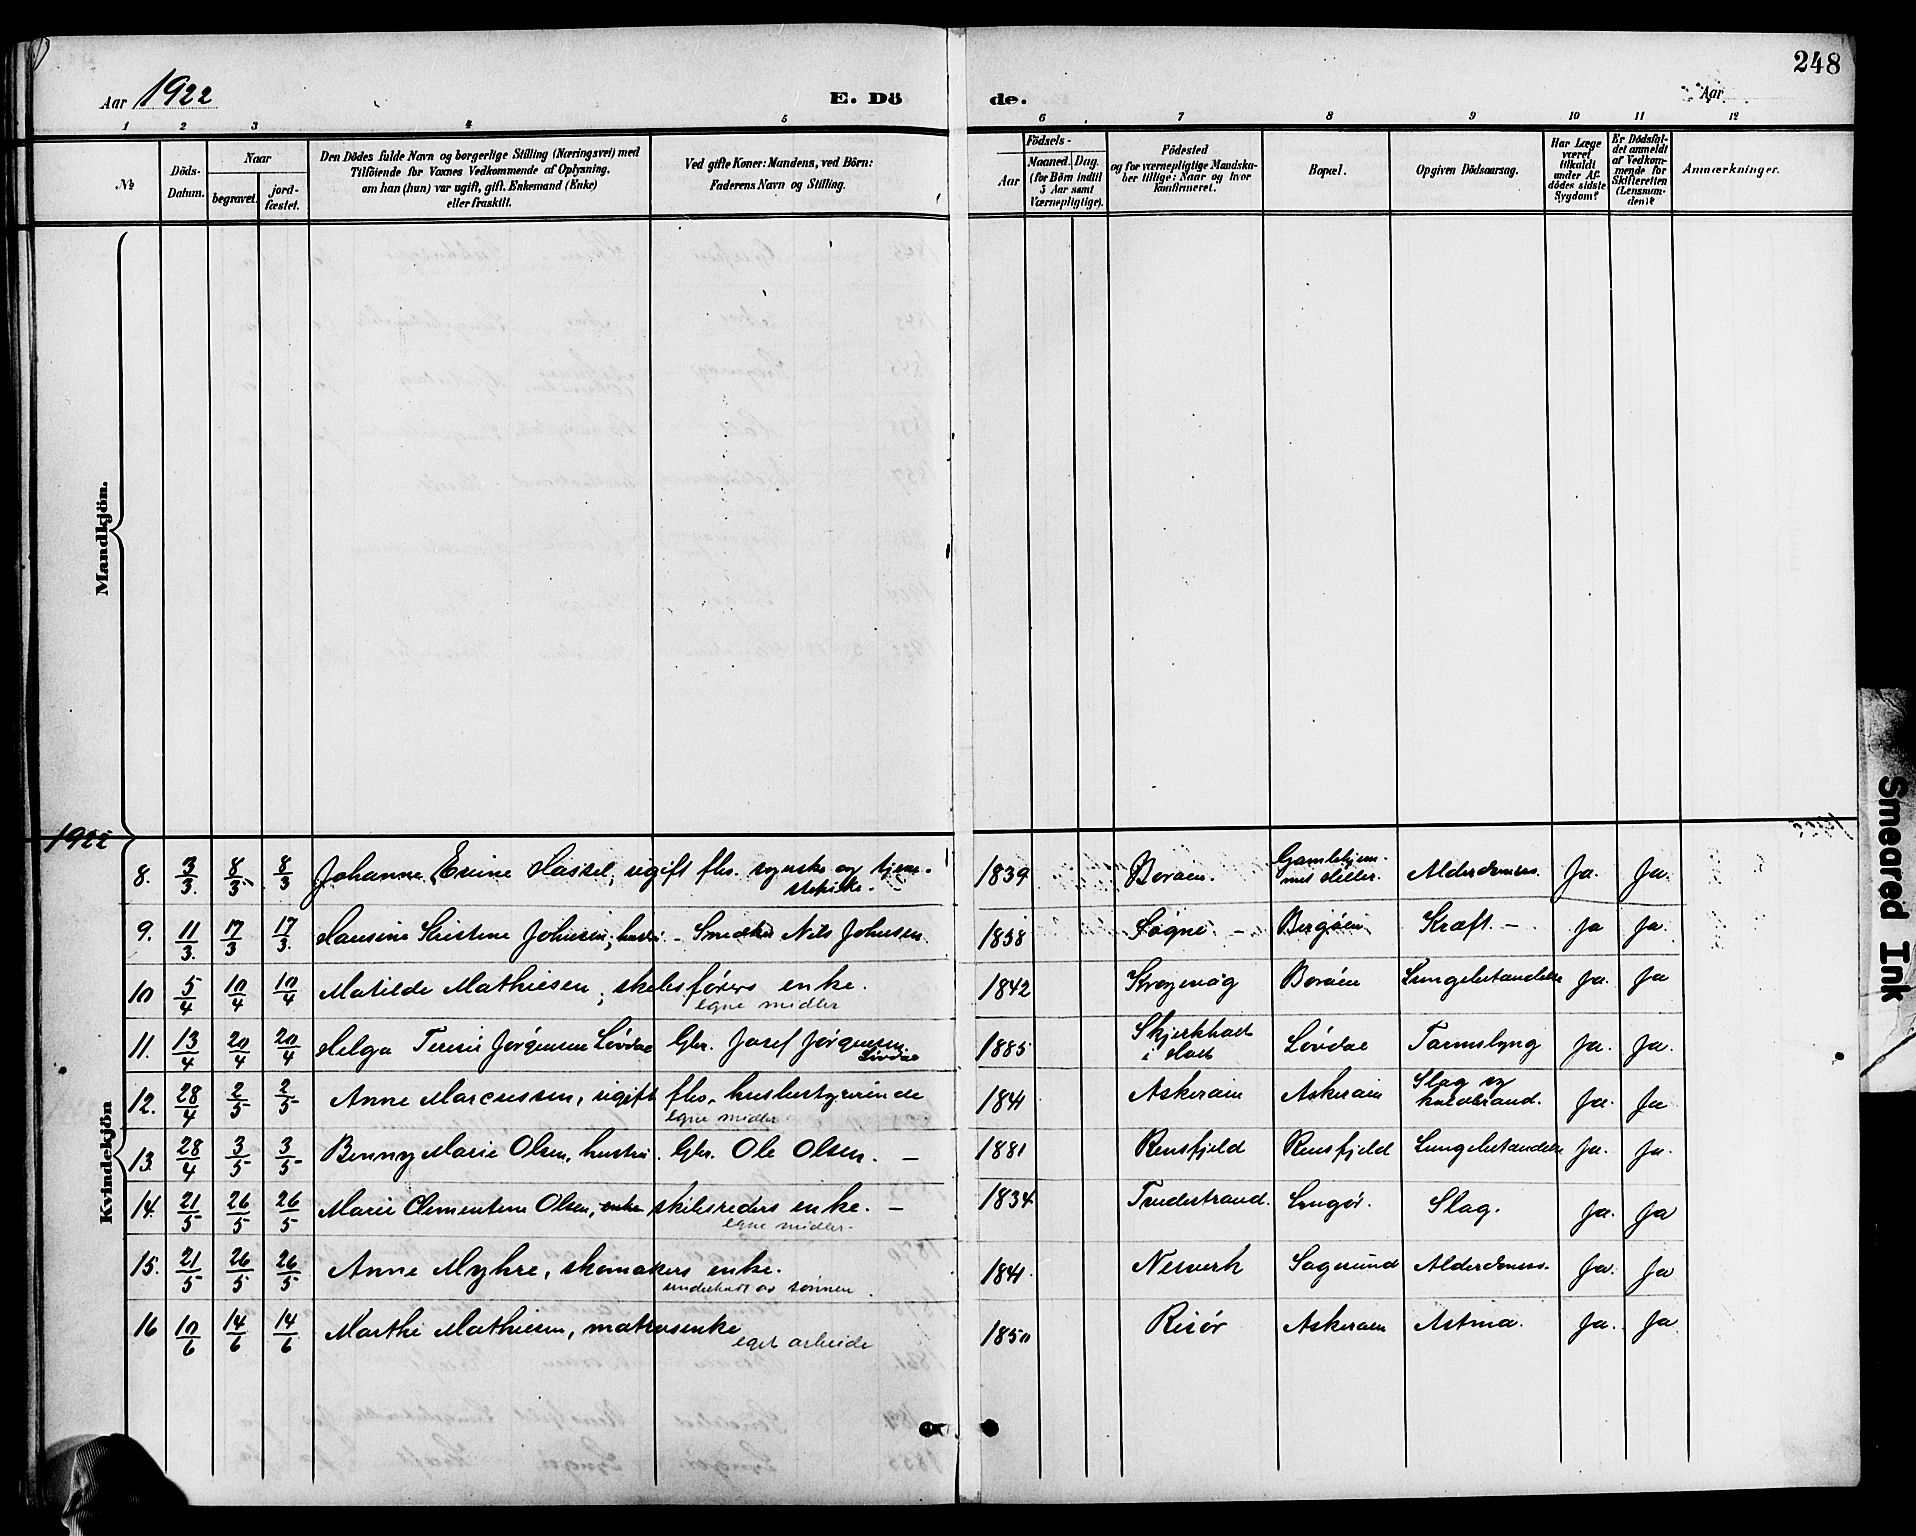 248
Aar 1922
E. Dö
de.
Aar
1 2 3 4 5 6 7 8 9 10 11 12
№
Döds-
Datum.
Naar
begravet.
jord-
fæstet.
Den Dödes fulde Navn og borgerlige Stilling (Næringsvei) med
Tilföiende for Voxnes Vedkommende af Oplysning,
om han (hun) var ugift, gift, Enkemand (Enke)
eller fraskilt.
Ved gifte Koner: Mandens, ved Börn:
Faderens Navn og Stilling.
Födsels-
Aar
Maaned. Dag.
(for Börn indtil
5 Aar samt
Værnepligtige).
Födested
og for værnepligtige Mandska-
ber tillige: Naar og hvor
konfirmeret.
Bopæl.
Opgiven Dödsaarsag.
Har Læge
været
tilkaldt
under Af-
dödes sidste
Sygdom?
Er Dödsfal-
det anmeldt
af Vedkom-
mende for
Skifteretten
(Lensman-
den)?
Anmærkninger.
Mandkjön.
1922
Kvindekjön
8. 3/3. 8/3. 8/3 Johanne Hassel, ugift fhv. syerske og tjene-
stepike. 1839 Boröen. Gamlehjem-
met Alderdomssv. Ja. Ja.
9. 11/3. 17/3 17/3. Johnsen, hustru - Nils Johnsen. 1838 Søgne. - Bergöen Kræft. - Ja Ja.
10 5/4 10/4 10/4 Matilde Mathiesen, skibsførers enke.
egne midler 1842 Boröen Lungebetændelse Ja. Ja
11. 13/4 20/4 20/4 Helga Jørgensen Løvdal Gbr. Josef Jørgensen
Løvdal 1885 Skjerkholt
i Holt Løvdal Tarmslyng Ja. Ja.
12. 28/4 2/5 2/5 Anne Marcussen, ugift fhv. husbestyrerinde
egne midler 1841 Askeröen Askeröen Slag og
koldbrand. Ja. Ja
13. 28/4 3/5 3/5 Benny Marie Olsen, hustru. Gbr. Ole Olsen. - 1881 Rensfjeld Rensfjeld Lungebetændelse Ja. Ja.
14. 21/5 26/5 26/5 Marie Clementine Olsen, enke skibsreders enke. -
egne midler. 1834 Lyngør. Slag. Ja. Ja
15. 21/5 26/5 26/5 Anne Myhre, skomakers enke.
underholdt av sønnen. 1841. Nesverk Sagesund Alderdomssv. Ja. Ja
16 10/6 14/6 14/6 Marthe Mathiesen, matrosenke
eget arbeide 1850 Risør Askeröen Astma. Ja. Ja
Smeared Ink